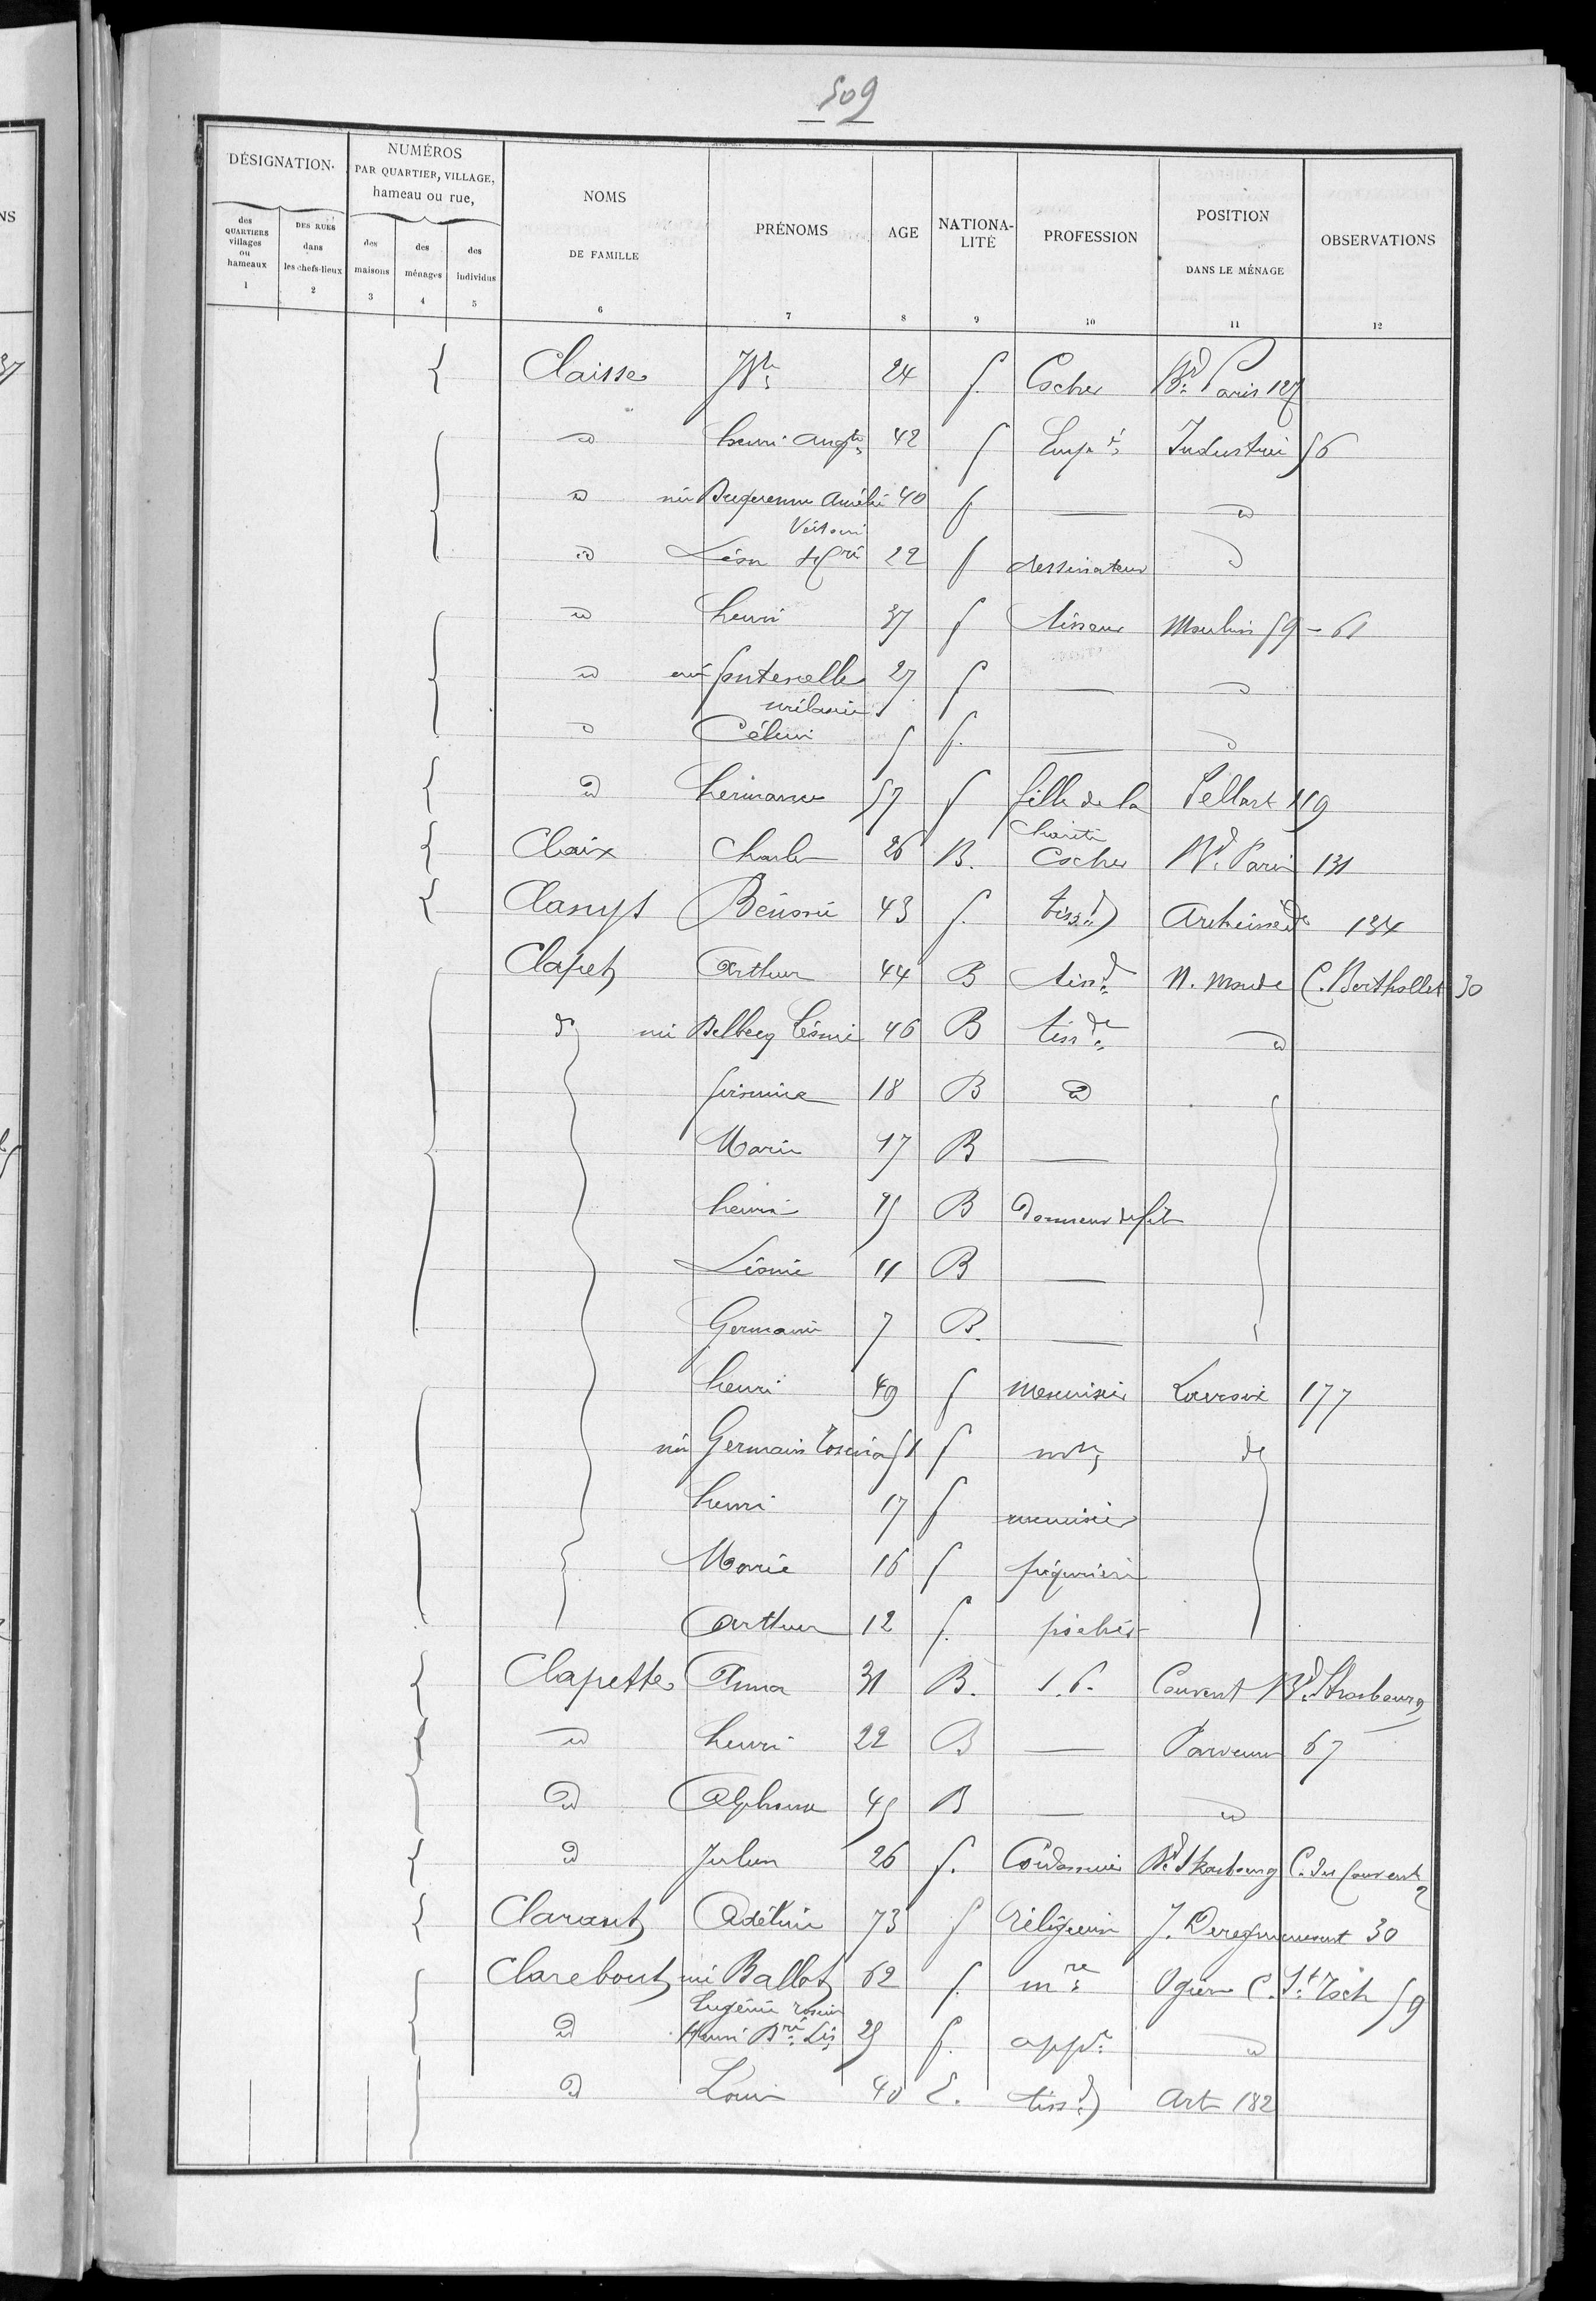 509
DÉSIGNATION.
NUMÉROS
PAR QUARTIER, VILLAGE,
hameau ou rue,
des
QUARTIERS
villages
ou
hameaux
1
DES RUES
dans
les chefs-lieux
2
des
maisons
3
des
ménages
4
des
individus
5
NOMS
DE FAMILLE
6
PRÉNOMS
7
AGE
8
NATIONA-
LITÉ
9
PROFESSION
10
POSITION
DANS LE MÉNAGE
11
OBSERVATIONS
12
Claisse Jh 24 f. Cocher Bd Paris 127
d henri Augte 42 f Empé Industrie 56
d née Duquenne Amélie 40 f — d
Victorine
d Léon 22 f dessinateur d
d henri 37 f tisseur Moulins 59-61
d née fontenelle 27 f — d
mélanie
d Célina 5 f. — d
d hermance 57 f fille de la Pellart 119
Charité
Claix Charles 26 B. Cocher Bd Paris 131
Clanys 43 f. tissd Archimède 134
Clapet Arthur 44 B tissd N. Monde C. Berthollet 30
d née Delbecq Léonie 46 B tissde d
18 B d
Marie 17 B —
henri 15 B donneur de fil
Léonie 11 B —
Germaine 7 B. —
henri 49 f menuisier 177
née Germain 51 f mre d
henri 17 f menuisier
Marie 16 f piqurière
Arthur 12 f.
Clapette Anna 31 B. s.p. Couvent Bd Strasbourg
d henri 22 B — Parvenus 67
d Alphonse 45 B — d
d Julien 26 f. Cordonnier Bd Strasbourg C. du Couvent 2
Clarant Adeline 73 f religieuse J. Deregnaucourt 30
Clarebout née Ballot 62 f. mre Ogier C. St Roch 59
Eugénie
d Henri 25 f. d
d Louis 40 tissd Art 182